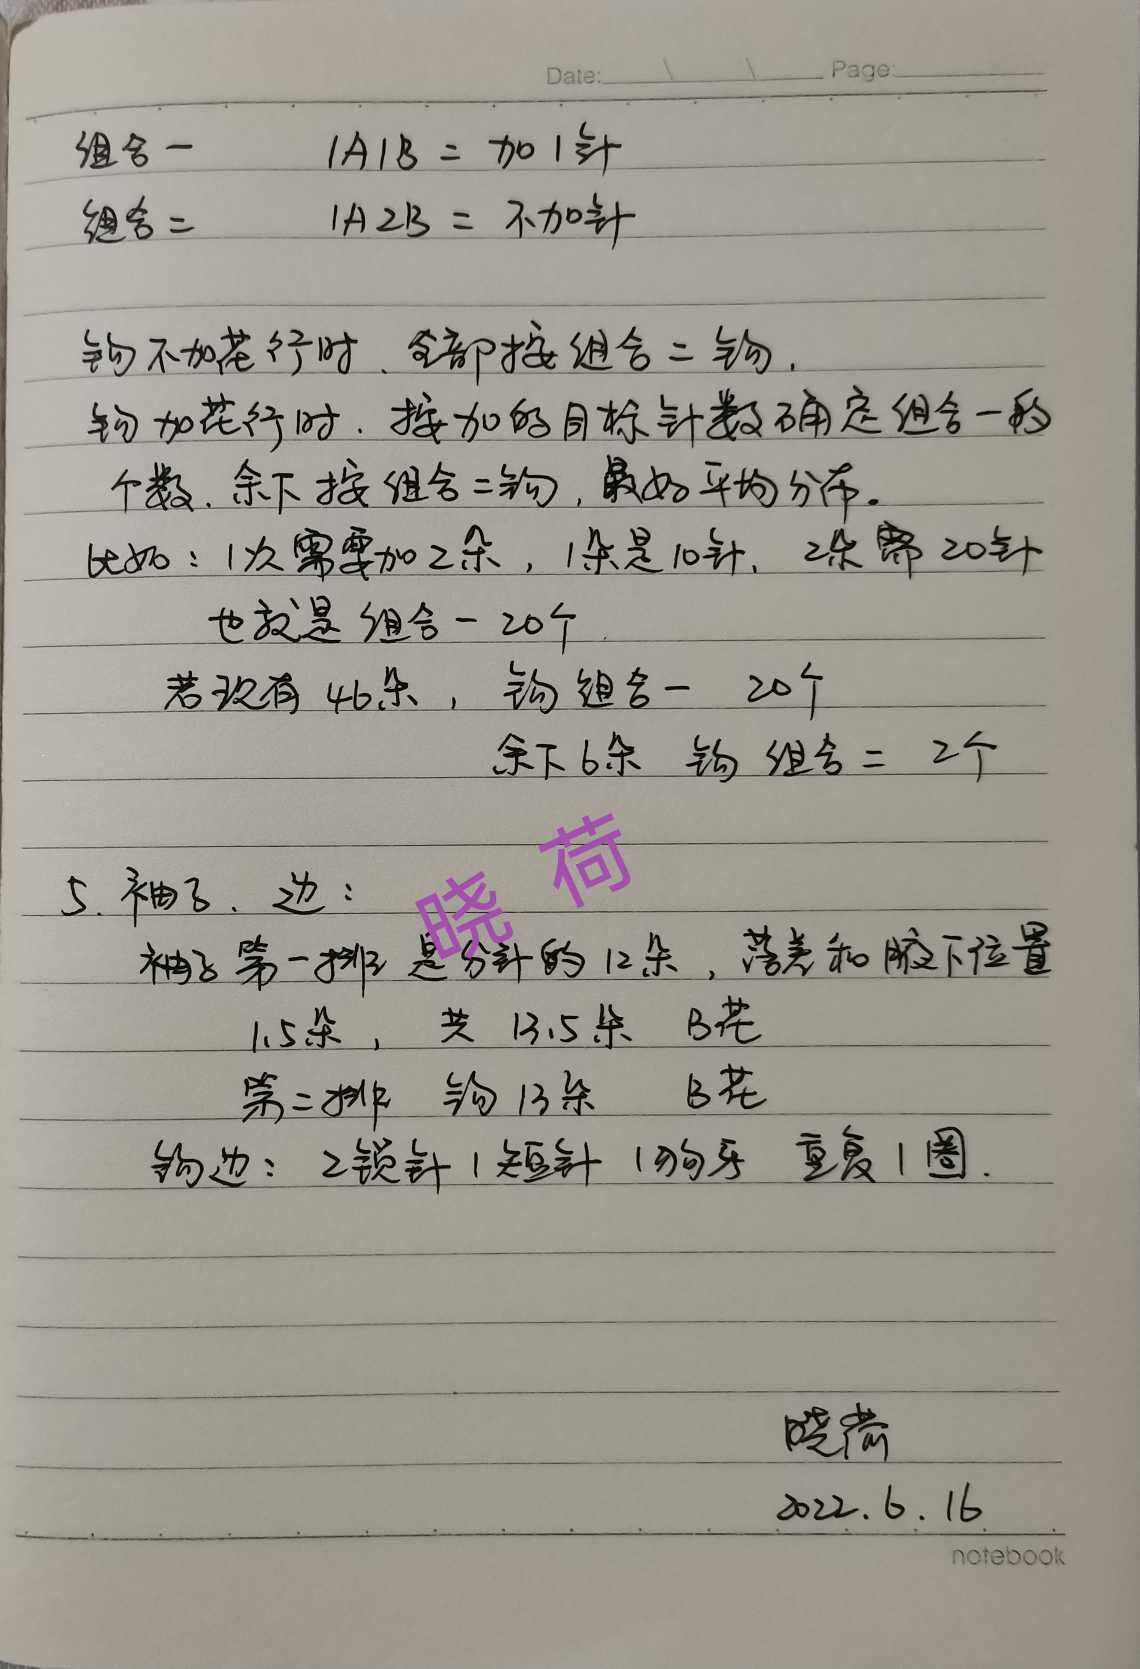 Date: \ \ Page:
组合一 1A1B = 加1针
组合二 1A2B = 不加针
钩不加花行时、全部按组合二钩.
钩加花行时.按加的目标针数确定组合一的
个数.余下按组合二钩,最好平均分布。
比如:1次需要加2朵,1朵是10针.2朵需20针
也就是组合一20个.
若现有46朵,钩组合一 20个
余下6朵 钩组合二 2个
晓荷
5.袖子、边:
袖子第一排是分针的12朵,落差和腋下位置
1.5朵,共13.5朵 B花
第二排 钩13朵 B花
钩边:2锁针1短针1狗牙 重复1圈.
晓荷
2022.6.16
notebook